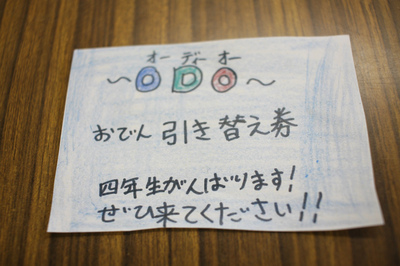 オー ディー オー
〜ODO〜
おでん 引き替え券
四年生がんばります!
ぜひ来てください!!